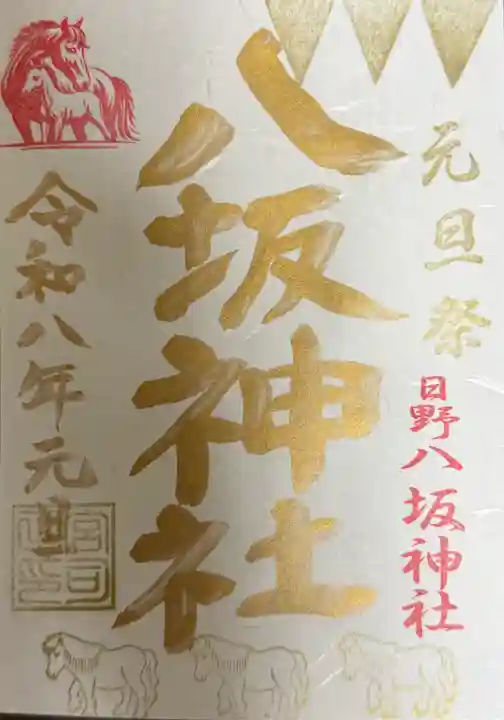 元旦祭
日野八坂神社
八坂神社
令和八年元旦